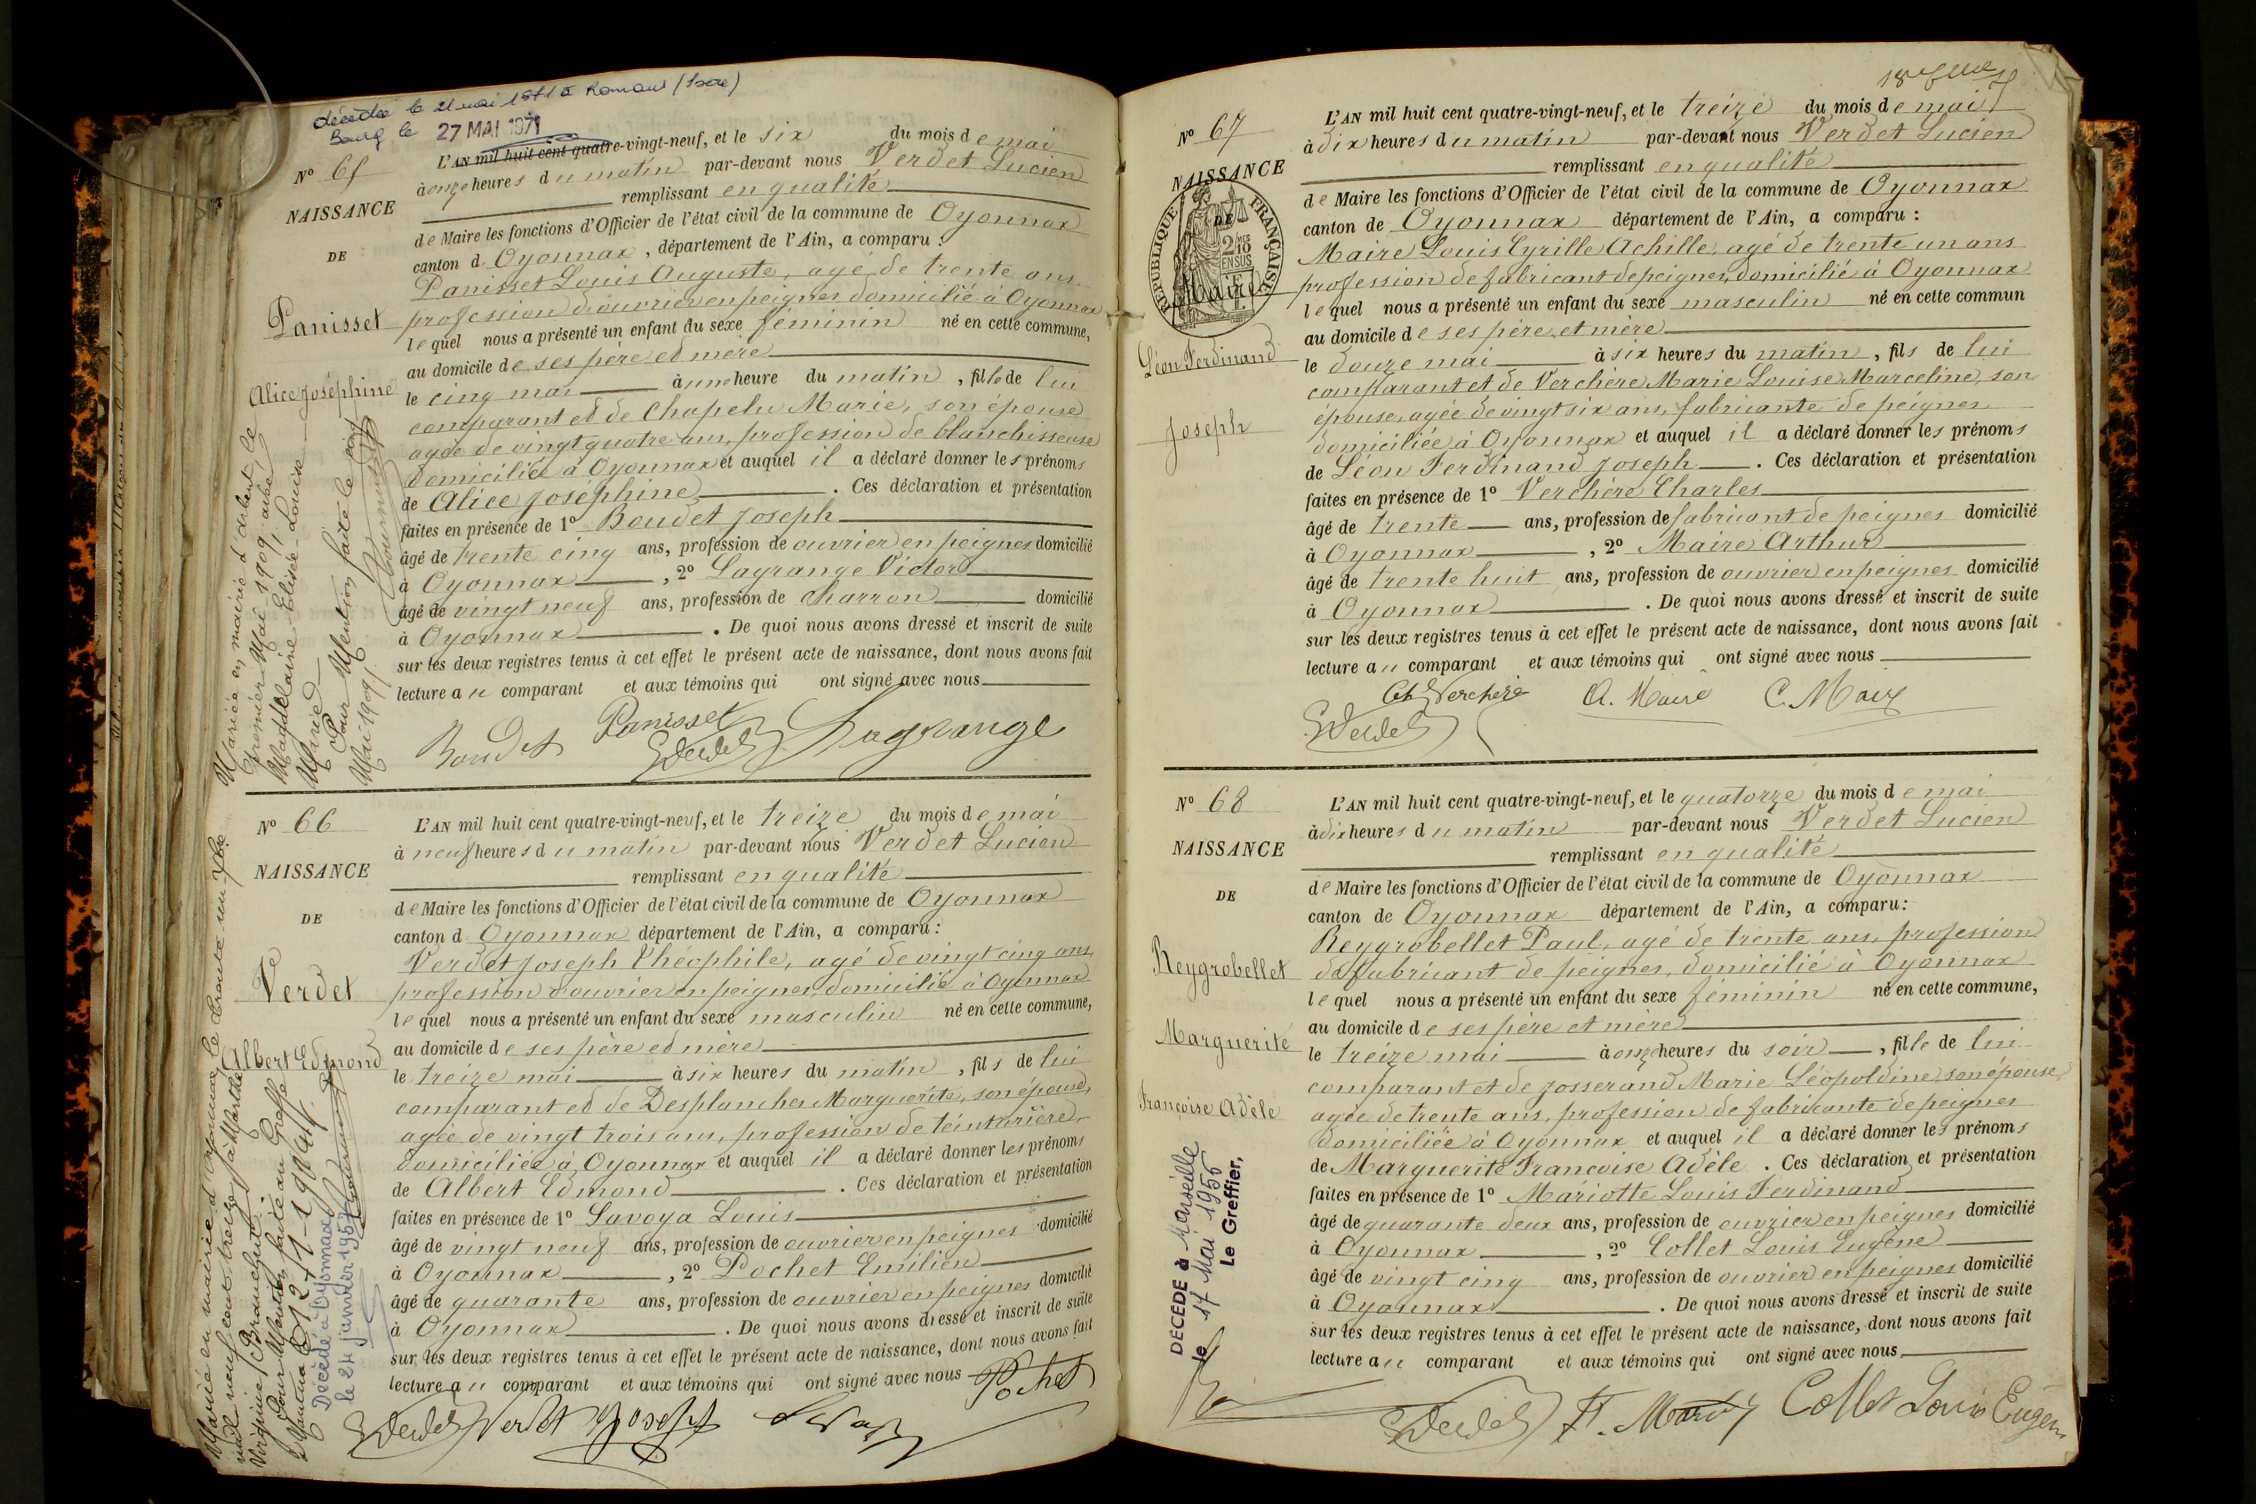 décédée le 21 mai 1971 à Romans (Isère)
Bourg le 27 MAI 1971
N° 65
NAISSANCE
DE
Panisset
Alice Joséphine
Mariée en mairie d'Arbent le
premier Mai 1909, avec
Magdelaine Elisée Louise
Marie
Pour Mention faite le
Mai 1909
L'AN mil huit cent quatre-vingt-neuf, et le six du mois de mai
à onze heures du matin par-devant nous Verdet Lucien
remplissant en qualité
de Maire les fonctions d'Officier de l'état civil de la commune de Oyonnax
canton d Oyonnax, département de l'Ain, a comparu :
Panisset Louis Auguste, agé de trente ans
profession d'ouvrier en peignes domicilié à Oyonnax
lequel nous a présenté un enfant du sexe féminin né en cette commune,
au domicile de ses père et mère
le cinq mai à une heure du matin, fille de lui
comparant et de Chapelu Marie, son épouse
agée de vingt quatre ans, profession de blanchisseuse
domiciliée à Oyonnax et auquel il a déclaré donner les prénoms
de Alice Joséphine. Ces déclaration et présentation
faites en présence de 1° Boudet Joseph
âgé de trente cinq ans, profession de ouvrier en peignes domicilié
à Oyonnax, 2° Lagrange Victor
âgé de vingt neuf ans, profession de charron domicilié
à Oyonnax. De quoi nous avons dressé et inscrit de suite
sur les deux registres tenus à cet effet le présent acte de naissance, dont nous avons fait
lecture au comparant et aux témoins qui ont signé avec nous
Boudet Panisset Lagrange
Verdet
N° 66
NAISSANCE
DE
Verdet
Albert Edmond
Marié en mairie d'Oyonnax le trente un
mil neuf cent treize, à Marthe
Virginie Branchut
Pour Mention faite au Greffe
Décédé à Oyonnax
le 24 janvier 1957
L'AN mil huit cent quatre-vingt-neuf, et le treize du mois de mai
à neuf heures du matin par-devant nous Verdet Lucien
remplissant en qualité
de Maire les fonctions d'Officier de l'état civil de la commune de Oyonnax
canton d Oyonnax département de l'Ain, a comparu :
Verdet Joseph Théophile, agé de vingt cinq ans,
profession d'ouvrier en peignes, domicilié à Oyonnax
lequel nous a présenté un enfant du sexe masculin né en cette commune,
au domicile de ses père et mère
le treize mai à six heures du matin, fils de lui
comparant et de Desplanches Marguerite, son épouse,
agée de vingt trois ans, profession de teinturière
domiciliée à Oyonnax et auquel il a déclaré donner les prénoms
de Albert Edmond. Ces déclaration et présentation
faites en présence de 1° Savoya Louis
âgé de vingt neuf ans, profession de ouvrier en peignes domicilié
à Oyonnax, 2° Pochet Emilien
âgé de quarante ans, profession de ouvrier en peignes domicilié
à Oyonnax. De quoi nous avons dressé et inscrit de suite
sur les deux registres tenus à cet effet le présent acte de naissance, dont nous avons fait
lecture au comparant et aux témoins qui ont signé avec nous Pochet
Verdet Verdet Joseph
N° 67
NAISSANCE
DE
RÉPUBLIQUE FRANÇAISE
2 10 MES
EN SUS
Maire
Léon Ferdinand
Joseph
L'AN mil huit cent quatre-vingt-neuf, et le treize du mois de mai
à dix heures du matin par-devant nous Verdet Lucien
remplissant en qualité
de Maire les fonctions d'Officier de l'état civil de la commune de Oyonnax
canton de Oyonnax département de l'Ain, a comparu :
Maire Louis Cyrille Achille, agé de trente un ans
profession de fabricant de peignes, domicilié à Oyonnax
lequel nous a présenté un enfant du sexe masculin né en cette commun
au domicile de ses père et mère
le douze mai à six heures du matin, fils de lui
comparant et de Verchère Marie Louise Marceline, son
épouse, agée de vingt six ans, fabricante de peignes
domiciliée à Oyonnax et auquel il a déclaré donner les prénoms
de Léon Ferdinand Joseph. Ces déclaration et présentation
faites en présence de 1° Verchère Charles
âgé de trente ans, profession de fabricant de peignes domicilié
à Oyonnax, 2° Maire Arthur
âgé de trente huit ans, profession de ouvrier en peignes domicilié
à Oyonnax. De quoi nous avons dressé et inscrit de suite
sur les deux registres tenus à cet effet le présent acte de naissance, dont nous avons fait
lecture au comparant et aux témoins qui ont signé avec nous
Ch Verchère A. Maire C. Maire
Verdet
N° 68
NAISSANCE
DE
Reygrobellet
Marguerite
Françoise Adèle
DÉCÉDÉ à Marseille
le 17 Mai 1955
Le Greffier,
L'AN mil huit cent quatre-vingt-neuf, et le quatorze du mois de mai
à dix heures du matin par-devant nous Verdet Lucien
remplissant en qualité
de Maire les fonctions d'Officier de l'état civil de la commune de Oyonnax
canton de Oyonnax département de l'Ain, a comparu :
Reygrobellet Paul, agé de trente ans, profession
de fabricant de peignes, domicilié à Oyonnax
lequel nous a présenté un enfant du sexe féminin né en cette commune,
au domicile de ses père et mère
le treize mai à onze heures du soir, fille de lui
comparant et de Josserand Marie Léopoldine, son épouse,
agée de trente ans, profession de fabricante de peignes
domiciliée à Oyonnax et auquel il a déclaré donner les prénoms
de Marguerite Françoise Adèle. Ces déclaration et présentation
faites en présence de 1° Mariotte Louis Ferdinand
âgé de quarante deux ans, profession de ouvrier en peignes domicilié
à Oyonnax, 2° Collet Louis Eugène
âgé de vingt cinq ans, profession de ouvrier en peignes domicilié
à Oyonnax. De quoi nous avons dressé et inscrit de suite
sur les deux registres tenus à cet effet le présent acte de naissance, dont nous avons fait
lecture au comparant et aux témoins qui ont signé avec nous
Verdet Collet Louis Eugène